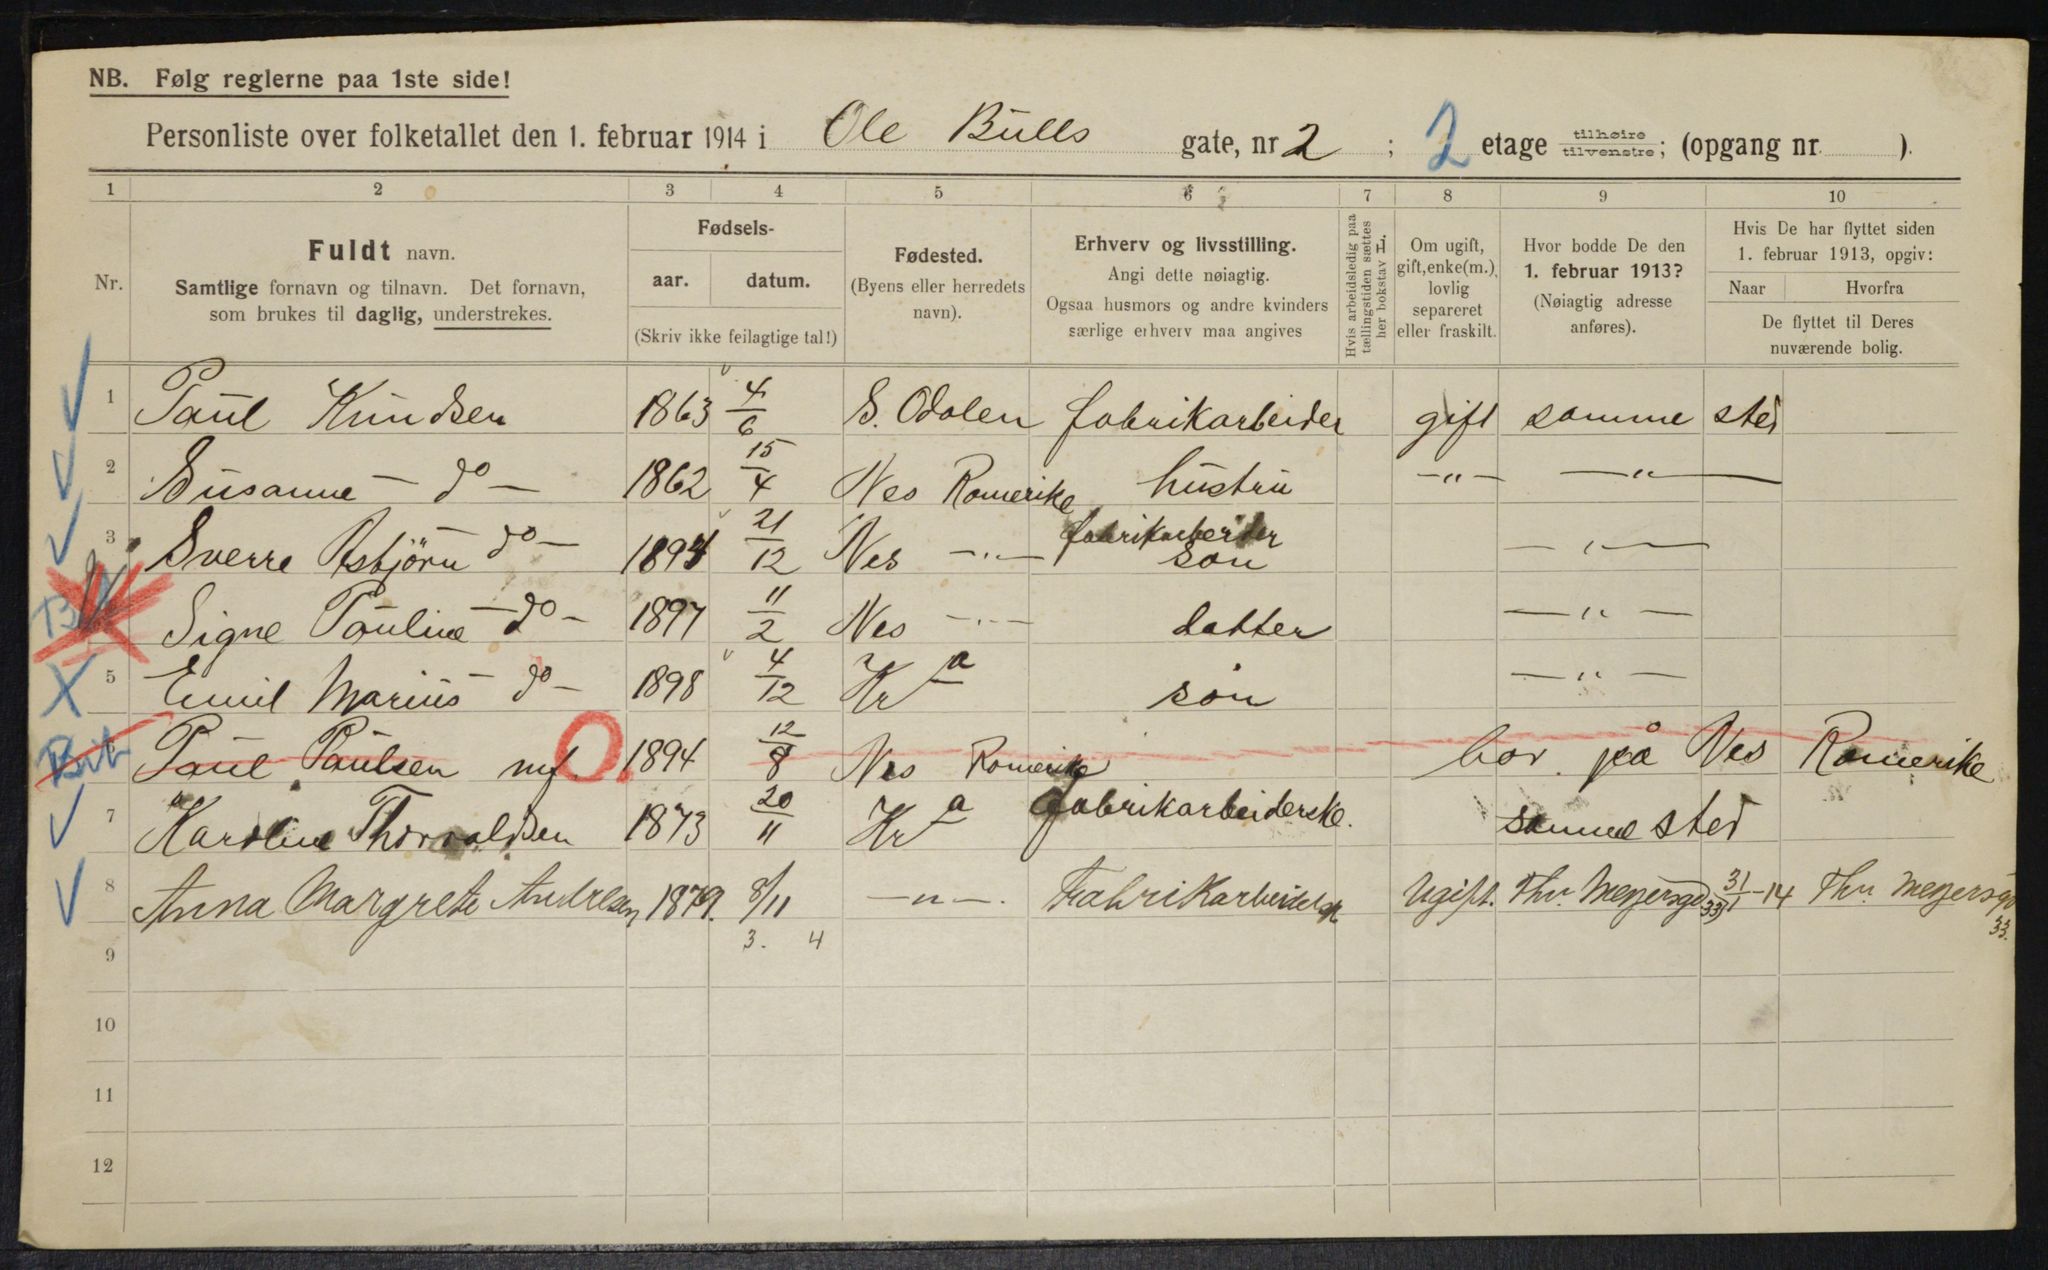 NB. Følg reglerne paa 1ste side!
Personliste over folketallet den 1. februar 1914 i Ole Bulls gate, nr 2 ; 2 etage tilhøire tilvenstre; (opgang nr. ).
1 2 3 4 5 6 7 8 9 10
Nr. Fuldt navn. Samtlige fornavn og tilnavn. Det fornavn, som brukes til daglig, understrekes.
Fødsels- aar. datum. (Skriv ikke feilagtige tal!)
Fødested. (Byens eller herredets navn).
Erhverv og livsstilling. Angi dette nøiagtig. Ogsaa husmors og andre kvinders særlige erhverv maa angives
Hvis arbeidsledig paa tællingstiden sættes her bokstav L.
Om ugift, gift, enke(m.), lovlig separeret eller fraskilt.
Hvor bodde De den 1. februar 1913? (Nøiagtig adresse anføres).
Hvis De har flyttet siden 1. februar 1913, opgiv: Naar Hvorfra De flyttet til Deres nuværende bolig.
1 Paul Knudsen 1863 4/6 S. Odalen fabrikarbeider gift samme sted
2 Susanne — do — 1862 15/4 Nes Romerike hustru —"— —"—
3 Sverre Asbjörn do — 1894 21/12 Nes —"— fabrikarbeider son —"—
Signe Pauline — do — 1897 11/2 Nes —"— datter —"—
5 Emil Marius — do — 1898 4/12 Kra son —"—
Paul Paulsen mf. 1894 12/8 Nes Romerike bor på Nes Romerike
7 Karoline Thorvaldsen 1873 20/11 Kra fabrikarbeiderske. samme sted
8 Anna Margrete Andresen 1879. 8/11 —"—. Ugift. Thv. Meyersgd 33 31/1-14 Thv. Meyersgd 33.
3. 4
9
10
11
12